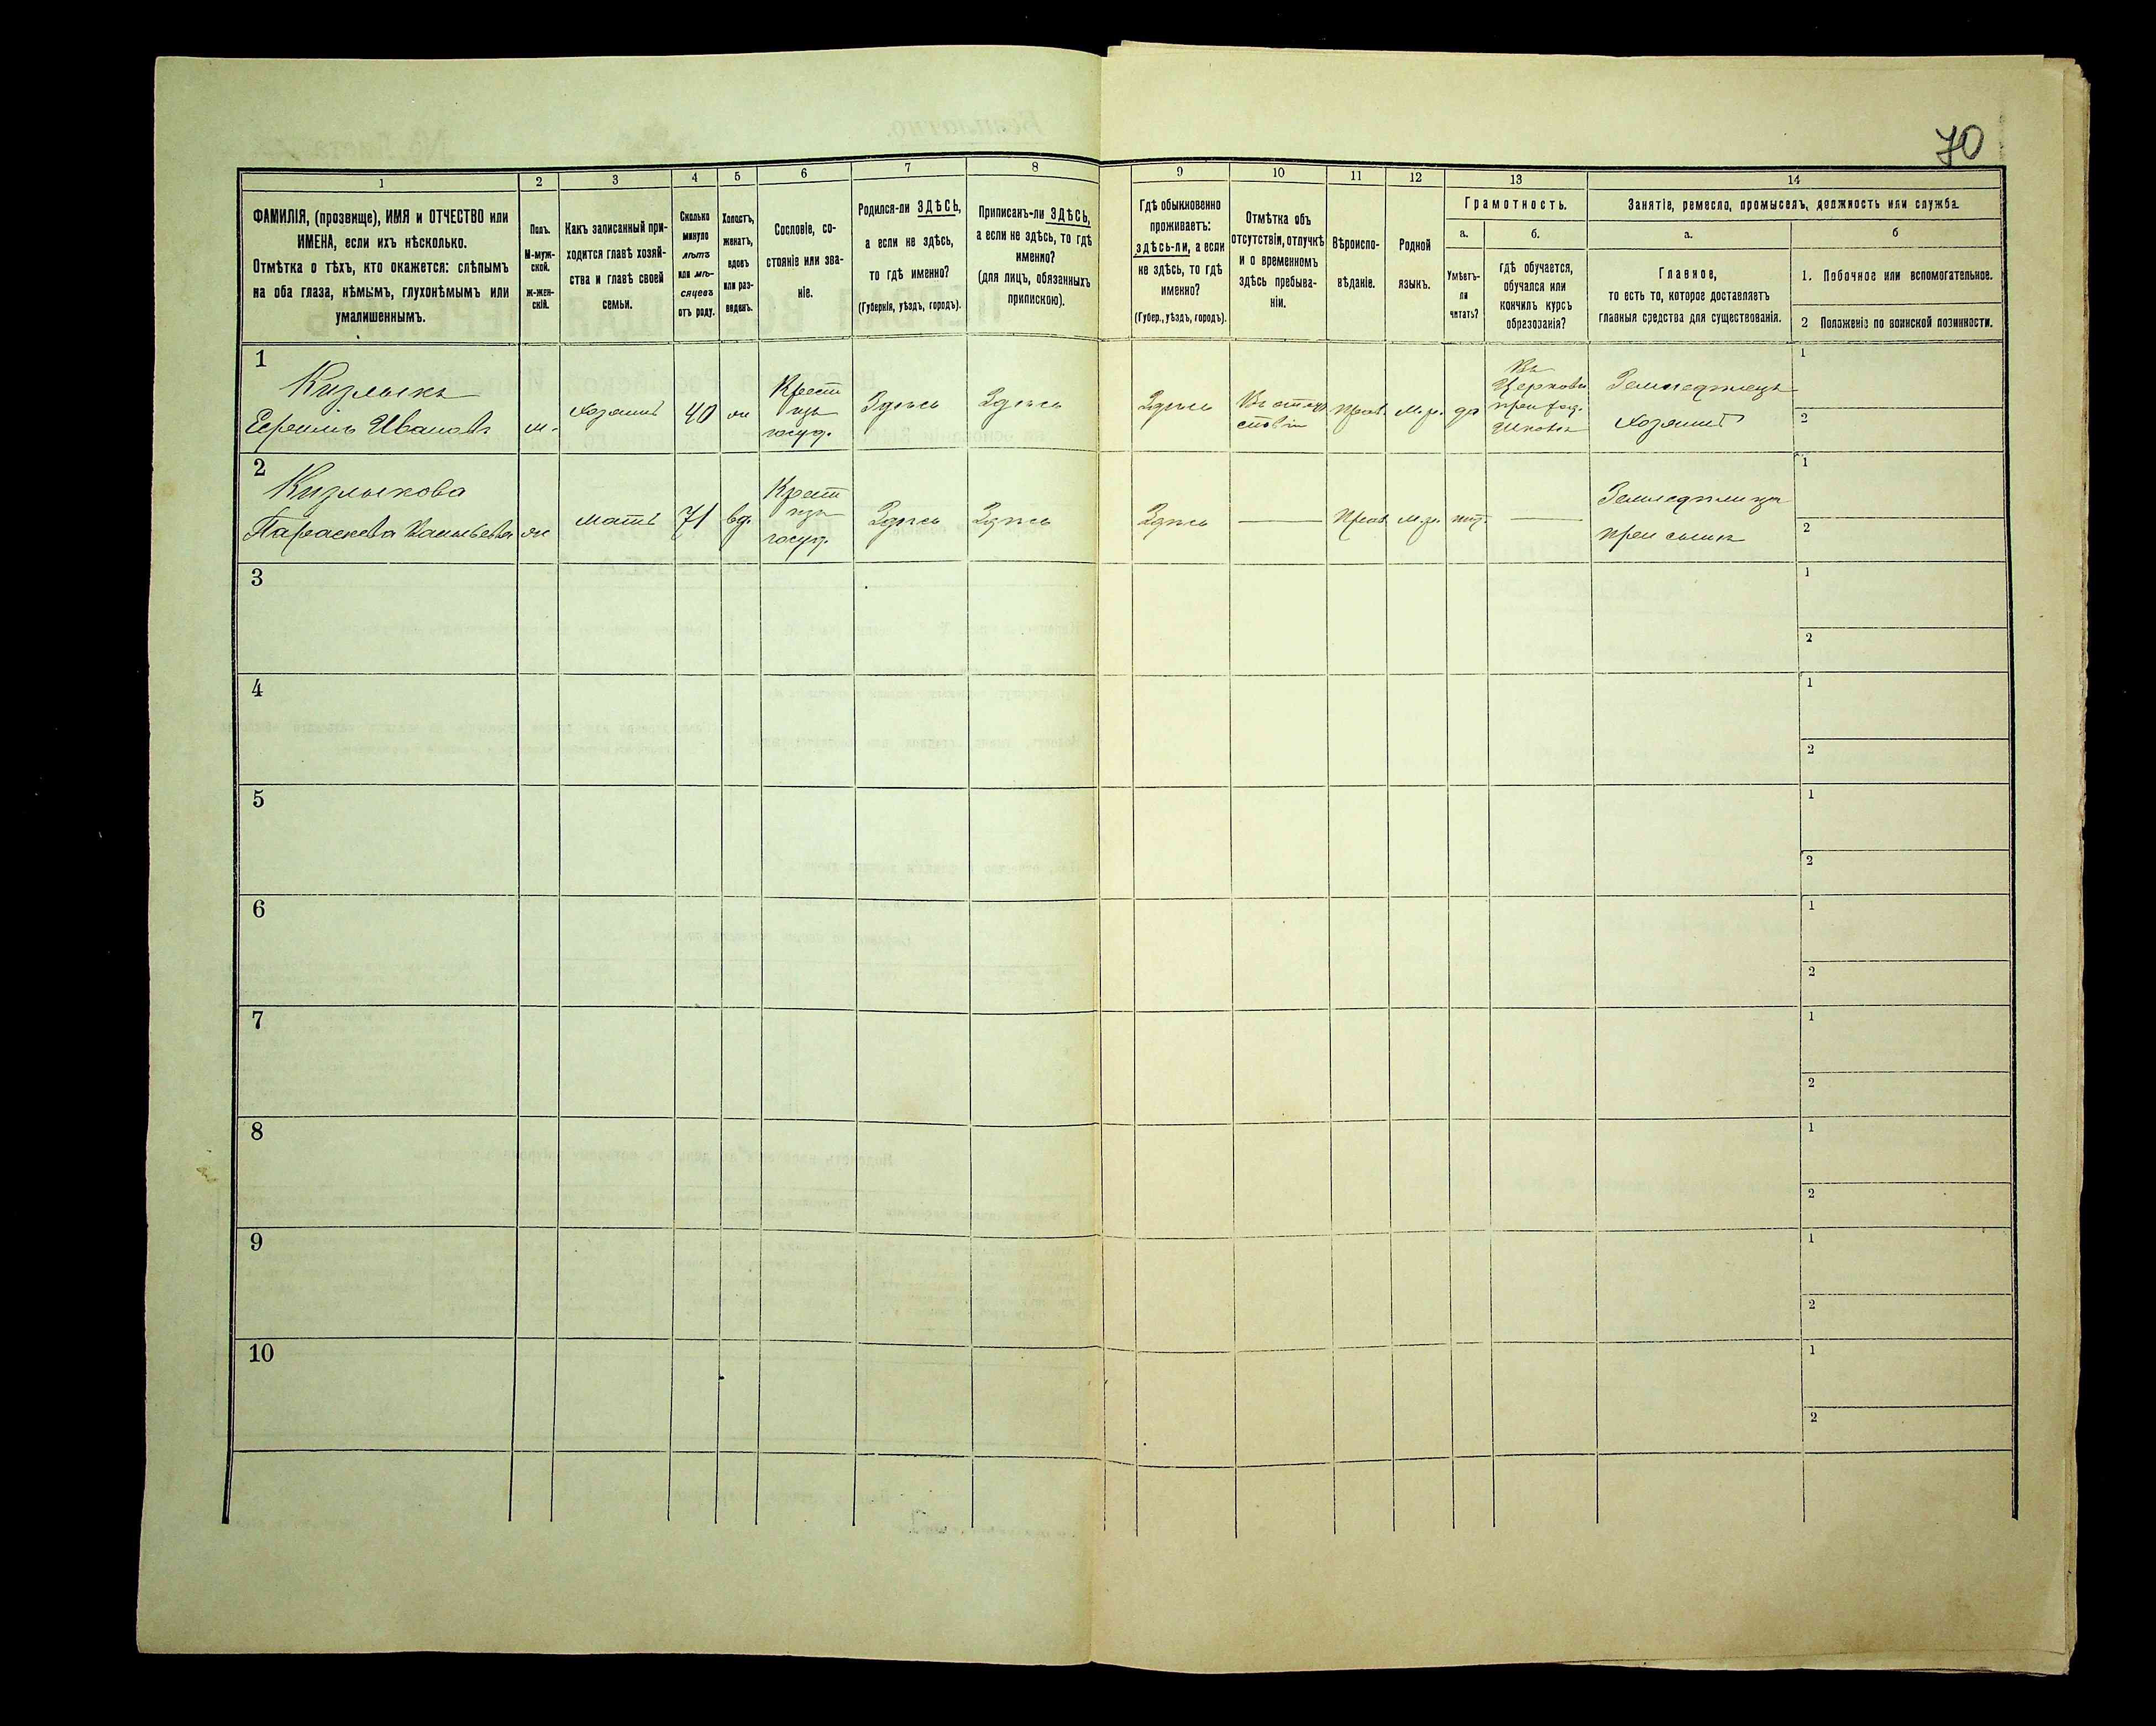 70
1
2
3
4
5
6
7
8
9
10
11
12
13
14
ФАМИЛІЯ, (прозвище), ИМЯ и ОТЧЕСТВО или
ИМЕНА, если ихъ нѣсколько.
Отмѣтка о тѣхъ, кто окажется: слѣпымъ
на оба глаза, нѣмымъ, глухонѣмымъ или
умалишеннымъ.
Полъ.
М-муж-
ской.
ж-жен-
скій.
Какъ записанный при-
ходится главѣ хозяй-
ства и главѣ своей
семьи.
Сколько
минуло
лѣтъ
или мѣ-
сяцевъ
отъ роду.
Холостъ,
женатъ,
вдовъ
или раз-
веденъ.
Сословіе, со-
стояніе или зва-
ніе.
Родился-ли ЗДѢСЬ,
а если не здѣсь,
то гдѣ именно?
(Губернія, уѣздъ, городъ).
Приписанъ-ли ЗДѢСЬ,
а если не здѣсь, то гдѣ
именно?
(для лицъ, обязанныхъ
припискою).
Гдѣ обыкновенно
проживаетъ:
здѣсь-ли, а если
не здѣсь, то гдѣ
именно?
(Губер., уѣздъ, городъ).
Отмѣтка объ
отсутствіи, отлучкѣ
и о временномъ
здѣсь пребыва-
ніи.
Вѣроиспо-
вѣданіе.
Родной
языкъ.
Грамотность.
а.
Умѣетъ-
ли
читать?
б.
гдѣ обучается,
обучался или
кончилъ курсъ
образованія?
Занятіе, ремесло, промыселъ, должность или служба.
а.
Главное,
то есть то, которое доставляетъ
главныя средства для существованія.
б
1. Побочное или вспомогательное.
2 Положеніе по воинской повинности.
1
Кизлыкъ
Ефимъ Ивановъ
м.
хозяинъ
40
ж
Крест
изъ
госуд.
Здѣсь
Здѣсь
Здѣсь
Въ отсут
ствіи
прав.
м.р.
да
Въ
Церковн
приход.
Школѣ
Земледѣлецъ
хозяинъ
1
2
2
Кизлыкова
Параскева Васильевна
ж
мать
71
вд.
Крест
изъ
госуд.
Здѣсь
Здѣсь
Здѣсь
—
прав
м.р.
нѣт.
—
Земледѣлица
при сынѣ
1
2
3
1
2
4
1
2
5
1
2
6
1
2
7
1
2
8
1
2
9
1
2
10
1
2